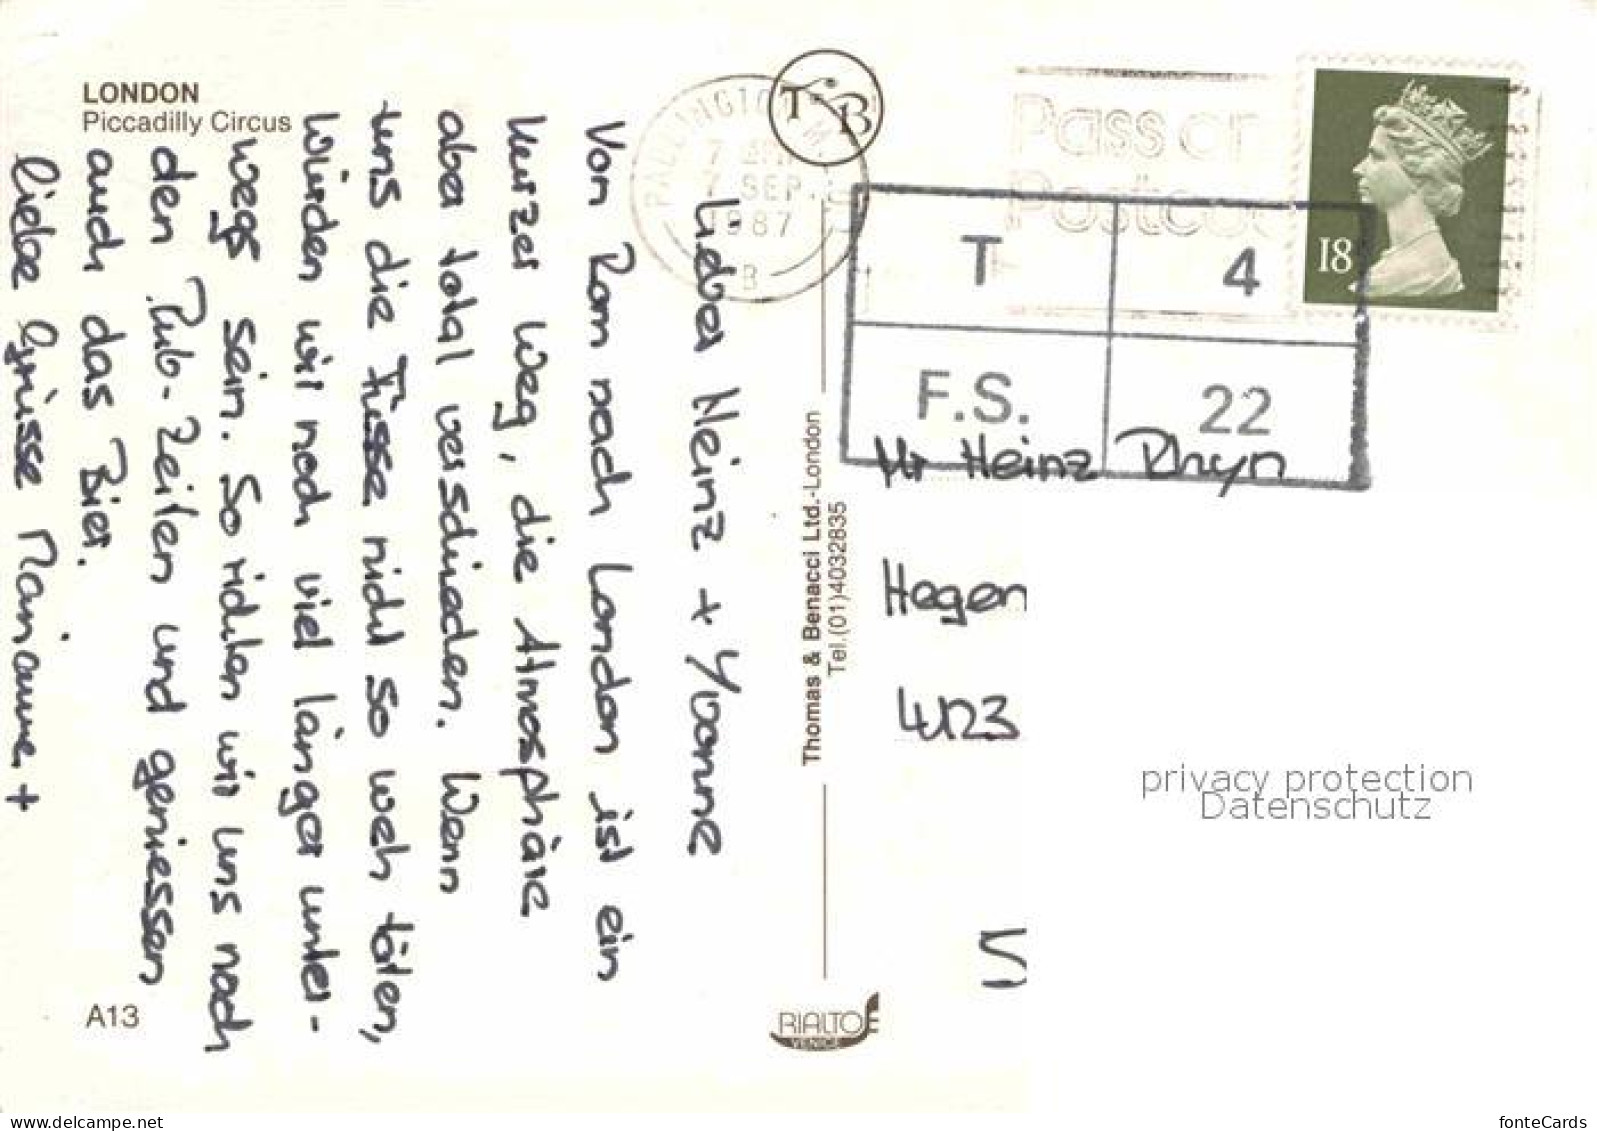 LONDON
Piccadilly Circus
Lieber Heinz + Yvonne
Von Rom nach London ist ein
kurzer Weg, die Atmosphäre
aber total verschieden. Wenn
uns die Füsse nicht so weh täten,
würden wir noch viel länger unter-
wegs sein. So richten wir uns nach
den Pub-Zeiten und geniessen
auch das Bier.
liebe Grüsse Marianne +
A13
Thomas & Benacci Ltd.-London
Tel.(01)4032835
RIALTO
VENICE
T B
PADDINGTON
7 SEP
1987
B
Pass on
Postcode
18
T 4
F.S. 22
Hr Heinz Rhyn
Hagen
4123
S
privacy protection
Datenschutz
www.ansichtskartenversand.com
fonteCards